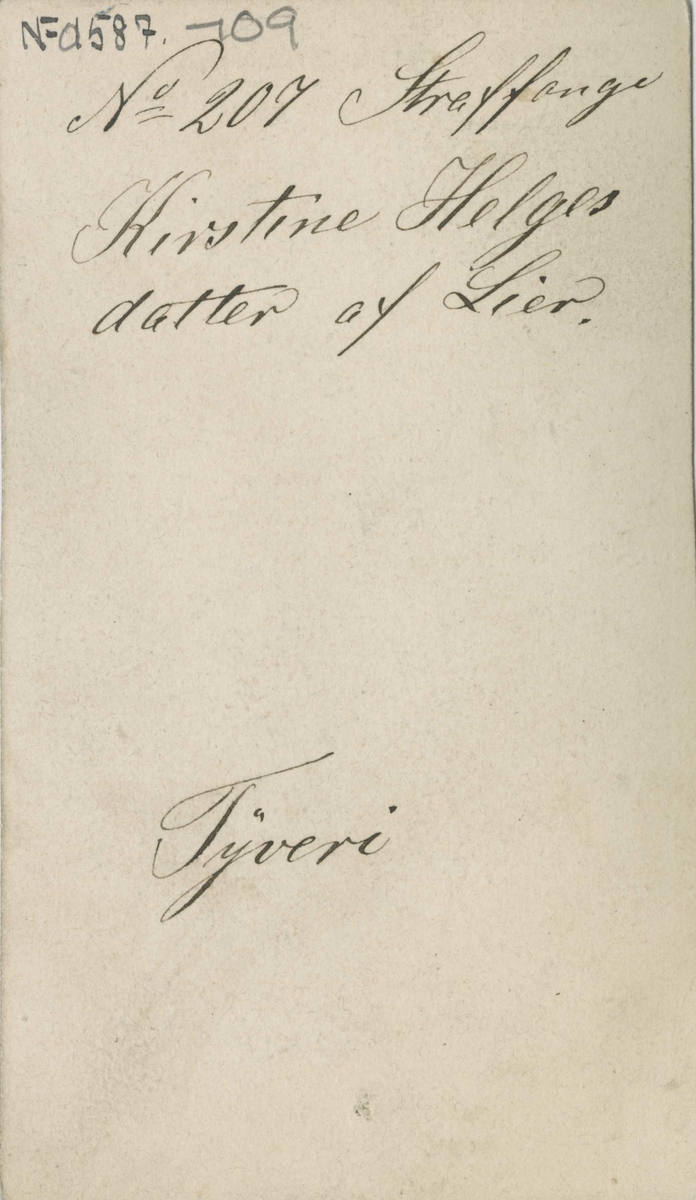 NF-a587. -109
No 207 Straffange
Kirstine Helges
datter af Lier.
Tÿveri